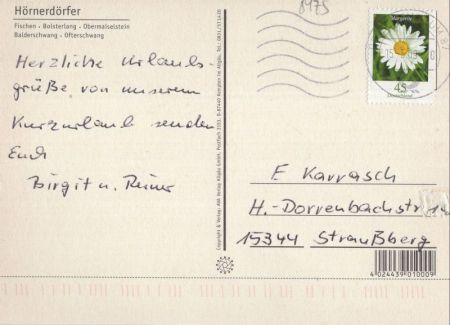 Hörnerdörfer
Fischen · Bolsterlang · Obermaiselstein
Balderschwang · Ofterschwang
Herzliche Urlaubs-
grüße von unserem
Kurzurlaub senden
Euch
Birgit u. Reiner
Copyright & Verlag: AVA Verlag Allgäu GmbH, Postfach 3153, D-87440 Kempten im Allgäu, Tel. 0831/
Margerite
45
Deutschland
E Karrasch
H.-Dorrenbachstr. 14
15344 Straußberg
4 024439 010009